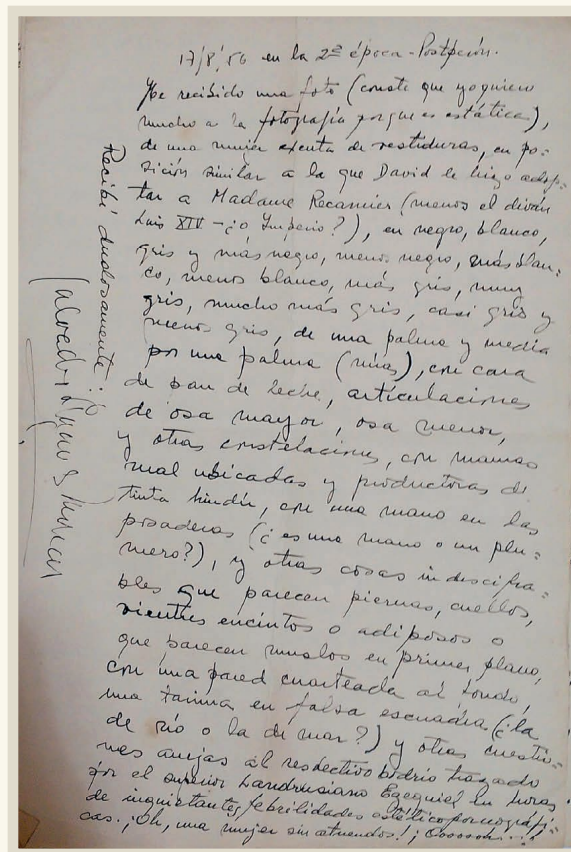 17/8/56 en la 2ª época - Postpción.
He recibido una foto (conste que yo quiero
mucho a la fotografía porque es estática),
de una mujer exenta de vestiduras, en po=
sición similar a la que David le hizo adop=
tar a Madame Recamier (menos el diván
Luis XIV - ¿o Imperio?), en negro, blanco,
gris y más negro, menos negro, más blan=
co, menos blanco, más gris, muy
gris, mucho más gris, casi gris y
menos gris, de una palma y media
por una palma (mías), con cara
de pan de leche, articulaciones
de osa mayor, osa menor,
y otras constelaciones, con mamas
mal ubicadas y productoras de
tinta hindú, con una mano en las
posaderas (¿es una mano o un plu=
mero?), y otras cosas indescifra=
bles que parecen piernas, cuellos,
vientres encintos o adiposos o
que parecen muslos en primer plano,
con una pared cuarteada al fondo,
una tarima en falsa escuadra (¿la
de río o la de mar?) y otras cuestio=
nes anejas al respectivo bodrio trazado
por el superior Landrusiano Ezequiel en horas
de inquietantes febrilidades estético pornográfi=
cas. ¡Oh, una mujer sin atuendos! ¡Ooooooh...!
Recibí dudosamente: